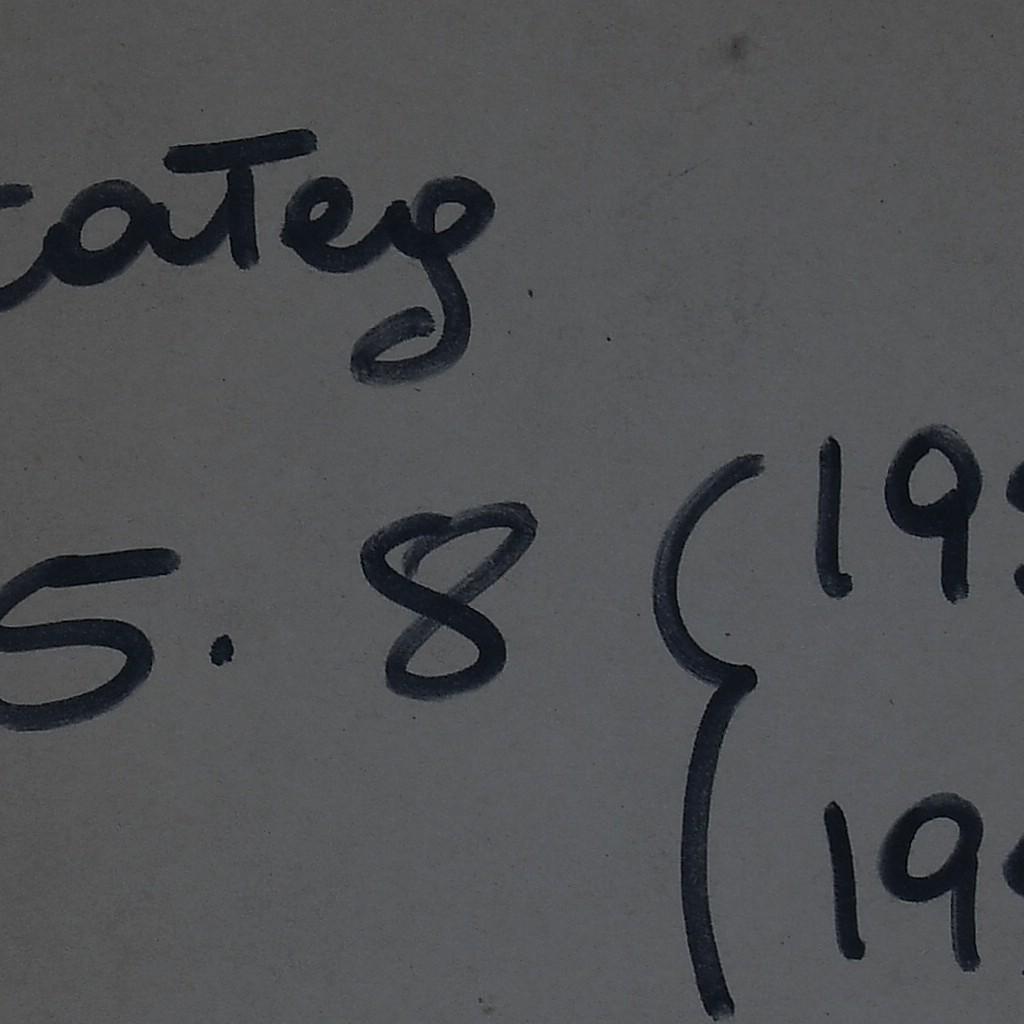 categ
5.8 { 19
19